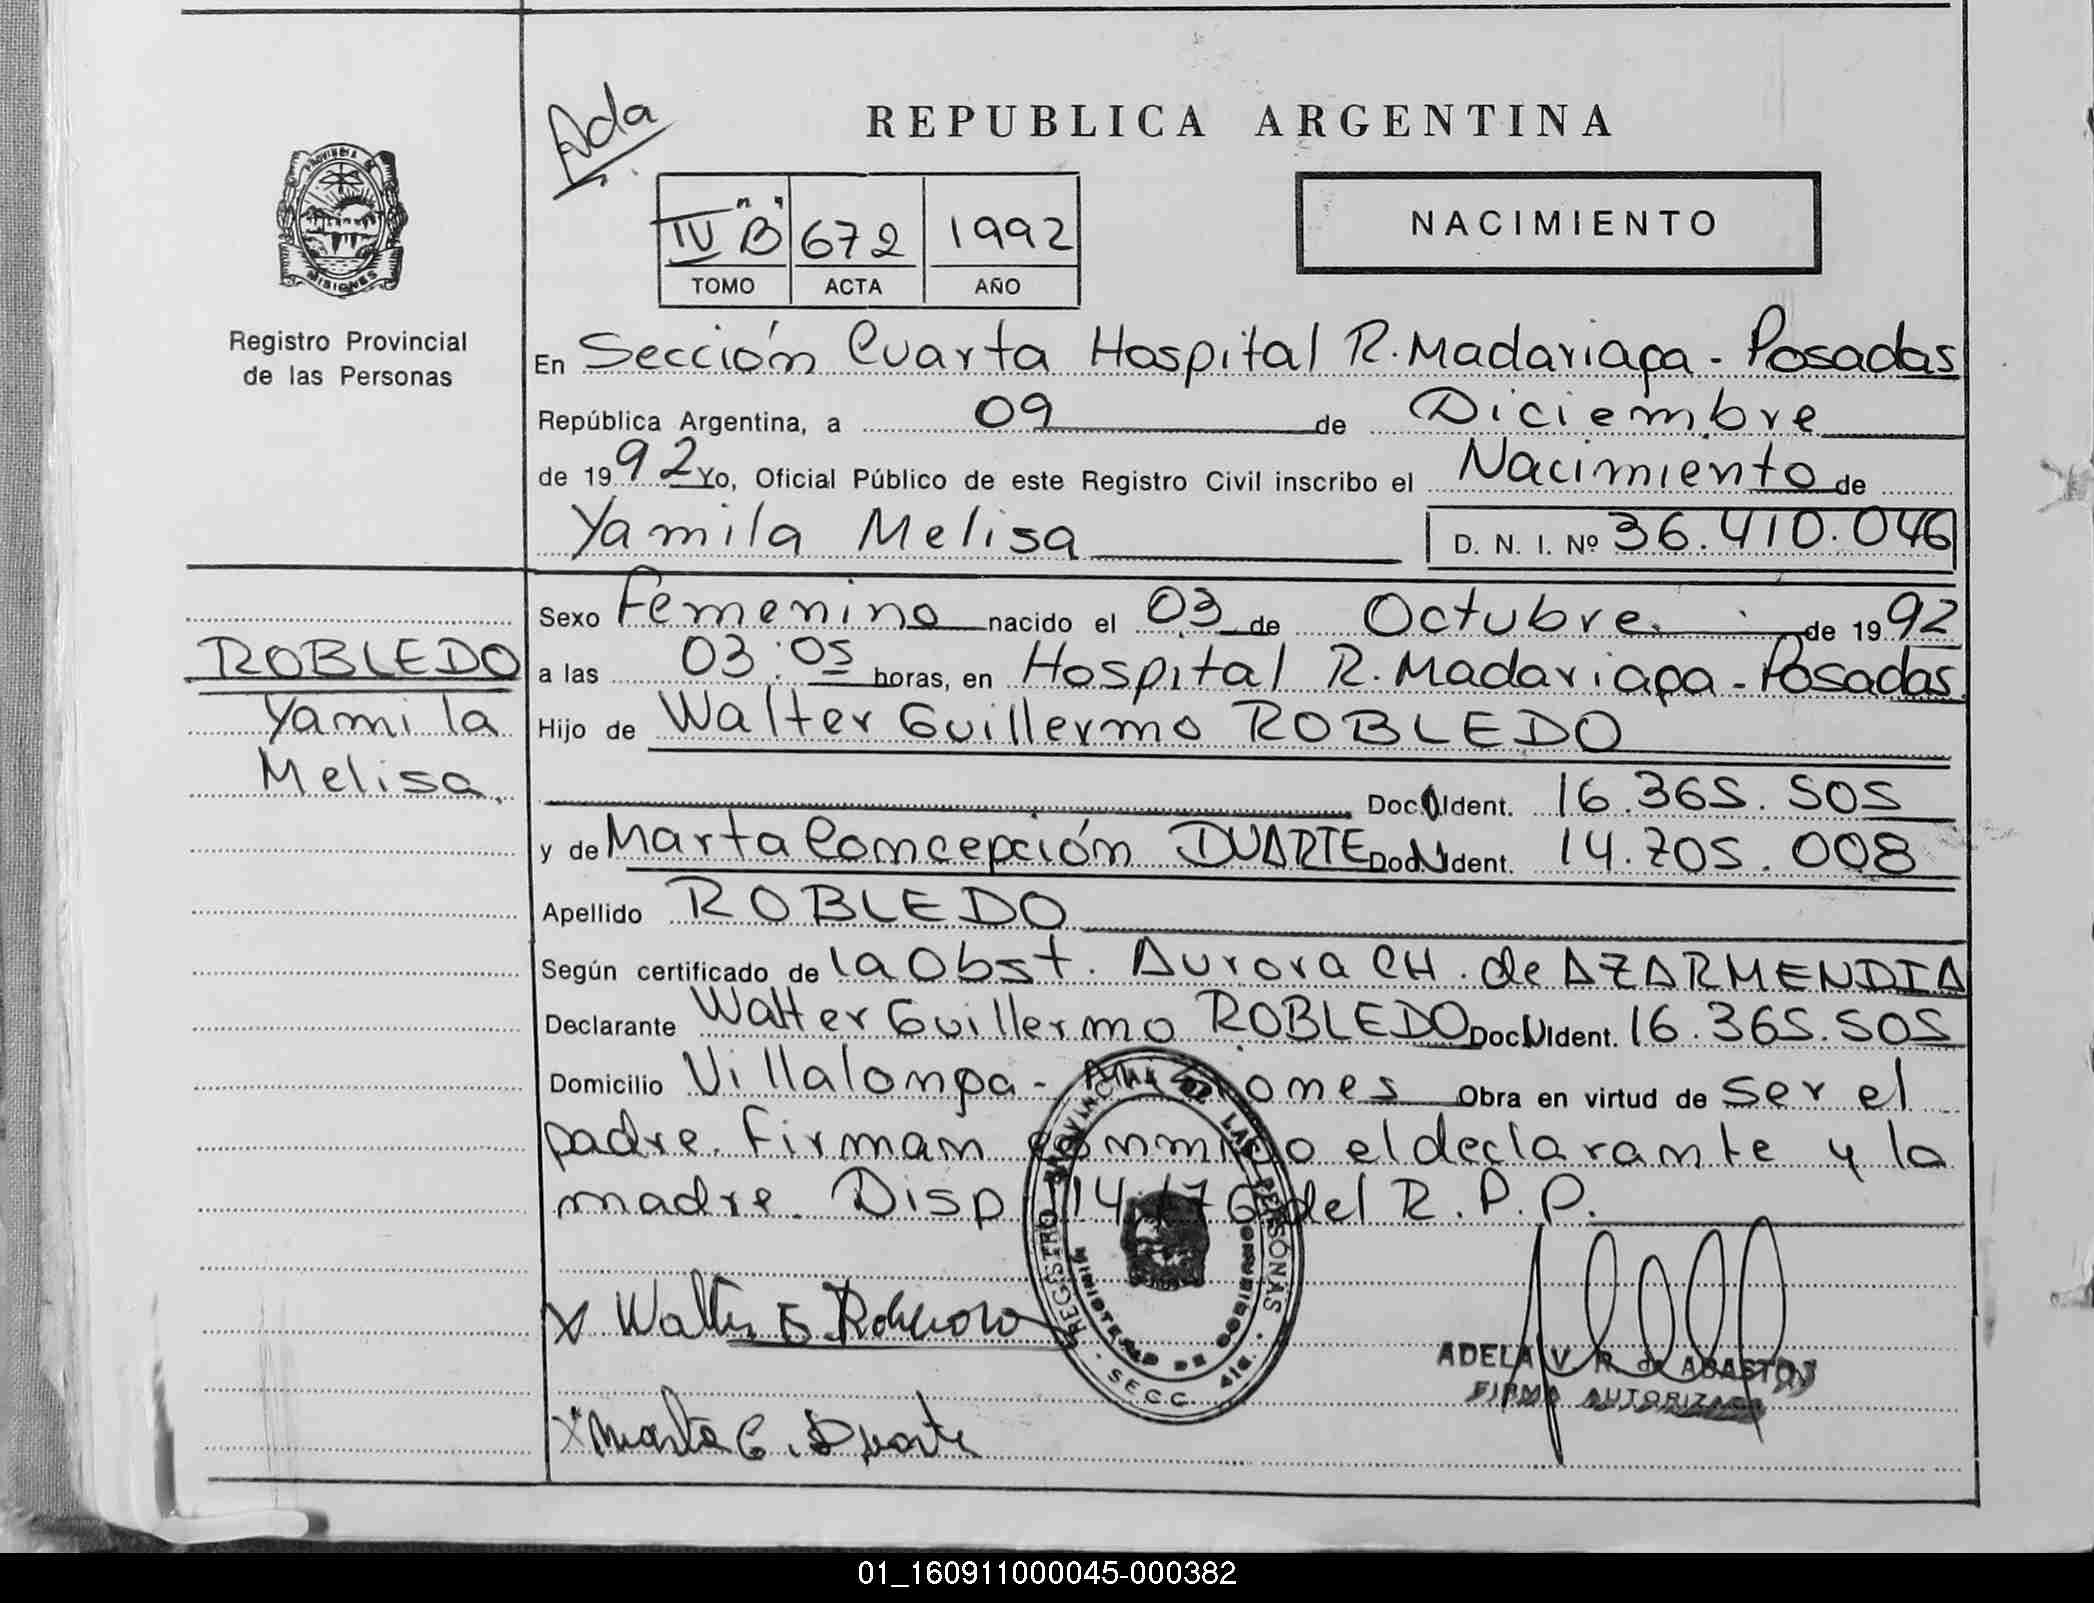 Ada
REPUBLICA ARGENTINA
PROVINCIA DE
MISIONES
Registro Provincial
de las Personas
IV "B" 672 1992
TOMO ACTA AÑO
NACIMIENTO
En Sección Cuarta Hospital R. Madariaga - Posadas
República Argentina, a 09 de Diciembre
de 1992 Yo, Oficial Público de este Registro Civil inscribo el Nacimiento de
Yamila Melisa D. N. I. Nº 36.410.046
ROBLEDO
Yamila
Melisa.
Sexo Femenino nacido el 03 de Octubre de 1992
a las 03:05 horas, en Hospital R. Madariaga - Posadas.
Hijo de Walter Guillermo ROBLEDO
Doc. Ident. 16.365.505
y de Marta Concepción DUARTE Doc. N Ident. 14.705.008
Apellido ROBLEDO
Según certificado de la Obst. Aurora CH. de AZARMENDIA
Declarante Walter Guillermo ROBLEDO Doc. N Ident. 16.365.505
Domicilio Villalonga - Misiones Obra en virtud de ser el
padre. Firman conmigo el declarante y la
madre. Disp. 114/76 del R.P.P.
REGISTRO PROVINCIAL DE LAS PERSONAS
MINISTERIO DE GOBIERNO
SECC. 4ta.
X Walter G. Robledo
X Marta C. Duarte
ADELA V. R. de ABASTOS
FIRMA AUTORIZADA
01_160911000045-000382